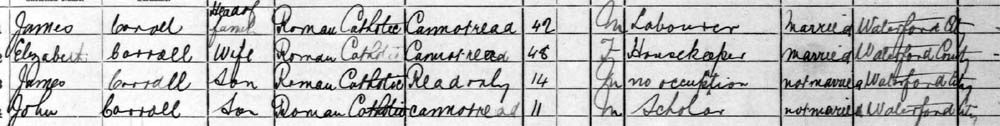 James Carroll Head of Family Roman Catholic Cannot read 42 M Labourer married Waterford City
Elizabeth Carroll Wife Roman Catholic Cannot read 48 F Housekeeper married Waterford County
James Carroll Son Roman Catholic Read only 14 M no occuption not married Waterford City
John Carroll Son Roman Catholic cannot read 11 M Scholar not married Waterford City